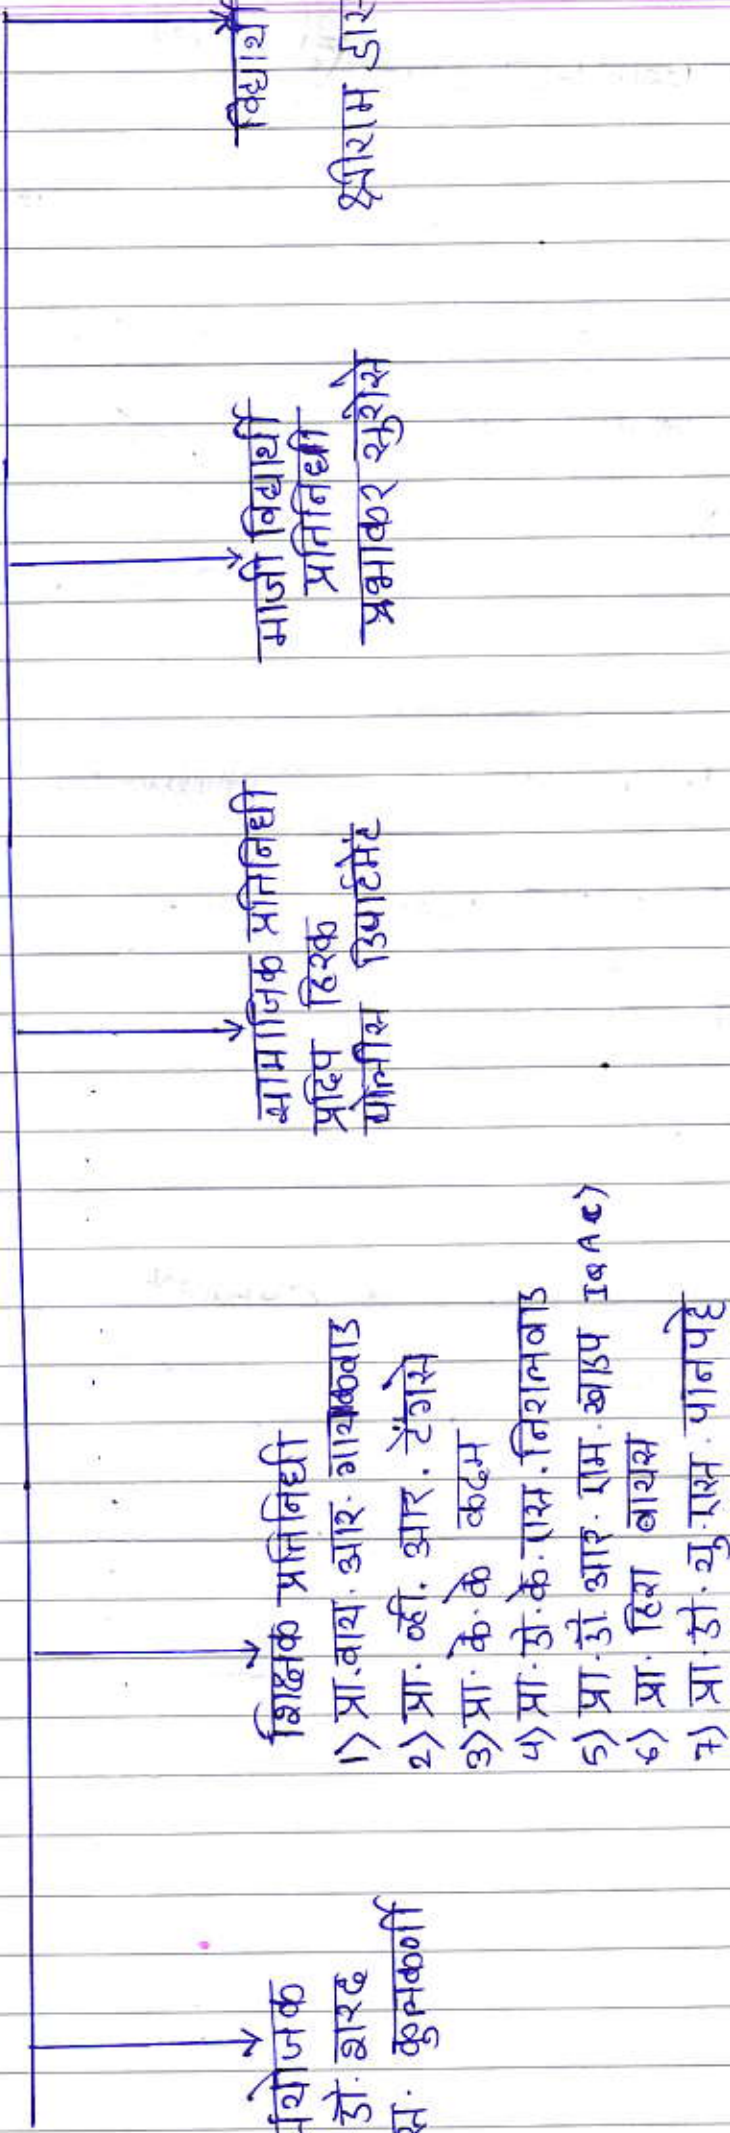 डॉ. शरद
कुलकर्णी
शिक्षक प्रतिनिधी
1) प्रा. वाय. आर. गायकवाड
2) प्रा. व्ही. आर. टेंगसे
3) प्रा. के. के कदम
4) प्रा. डॉ. के. एस. निरालवाड
5) प्रा. डॉ. आर. एम. खाडप IQAC)
6) प्रा. हिरा बायस
7) प्रा. डॉ. यु. एस. पानपट्टे
सामाजिक प्रतिनिधी
प्रदिप हिरक
पोलीस डिपार्टमेंट
माजी विद्यार्थी
प्रतिनिधी
प्रभाकर सुरोसे
विद्यार्थी
श्रीराम